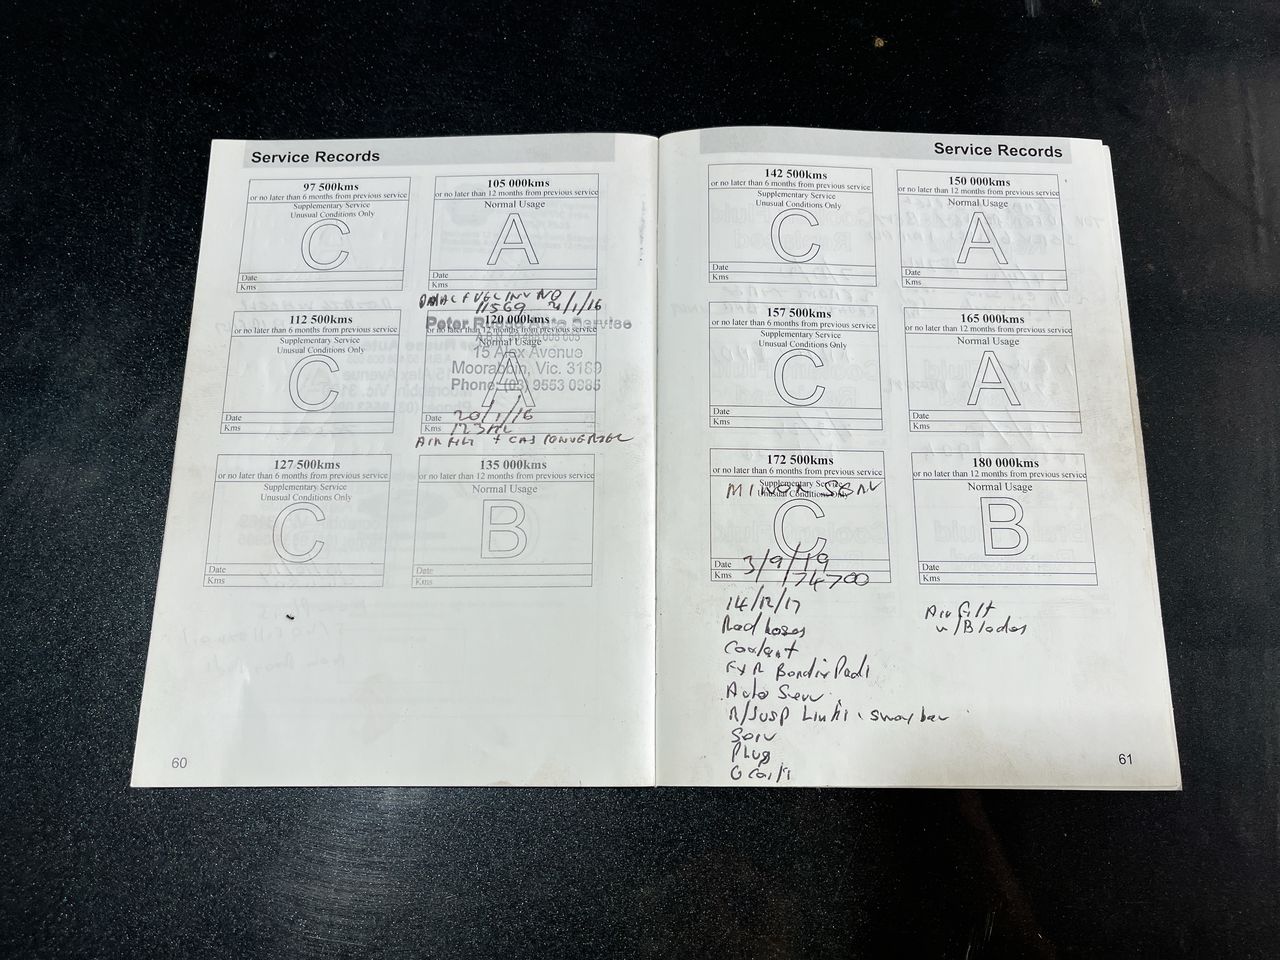 Service Records
97 500kms
or no later than 6 months from previous service
Supplementary Service
Unusual Conditions Only
C
Date
Kms
105 000kms
or no later than 12 months from previous service
Normal Usage
A
Date
Kms
FUEL INV NO
11569 21/1/16
112 500kms
or no later than 6 months from previous service
Supplementary Service
Unusual Conditions Only
C
Date
Kms
120 000kms
Peter Service
or no later than 12 months from previous service
Normal Usage
15 Alex Avenue
Moorabbin, Vic. 3189
Phone: (03) 9553 0985
A
Date 20/1/16
Kms
AIR FILT +
127 500kms
or no later than 6 months from previous service
Supplementary Service
Unusual Conditions Only
C
Date
Kms
135 000kms
or no later than 12 months from previous service
Normal Usage
B
Date
Kms
60
Service Records
142 500kms
or no later than 6 months from previous service
C
Date
Kms
150 000kms
or no later than 12 months from previous service
Normal Usage
A
Date
Kms
157 500kms
or no later than 6 months from previous service
Supplementary Service
Unusual Conditions Only
C
Date
Kms
165 000kms
or no later than 12 months from previous service
Normal Usage
A
Date
Kms
172 500kms
or no later than 6 months from previous service
Supplementary Service
Unusual Conditions Only
MINOR
C
Date 3/9/19
Kms 174700
14/12/17
Rad hoses
Coolant
F & R Bendix Pads
Auto Serv
R/Susp Links. sway bar
Serv
Plug
180 000kms
or no later than 12 months from previous service
Normal Usage
B
Date
Kms
Air filt
w/Blades
61